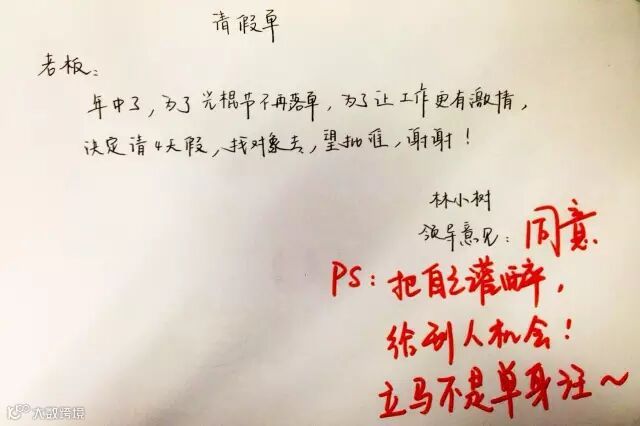 请假单
老板：
年中了，为了光棍节不再落单，为了让工作更有激情，
决定请4天假，找对象去，望批准，谢谢！
林小树
领导意见：同意
PS：把自己灌醉，
给别人机会！
立马不是单身汪～
大数跨境